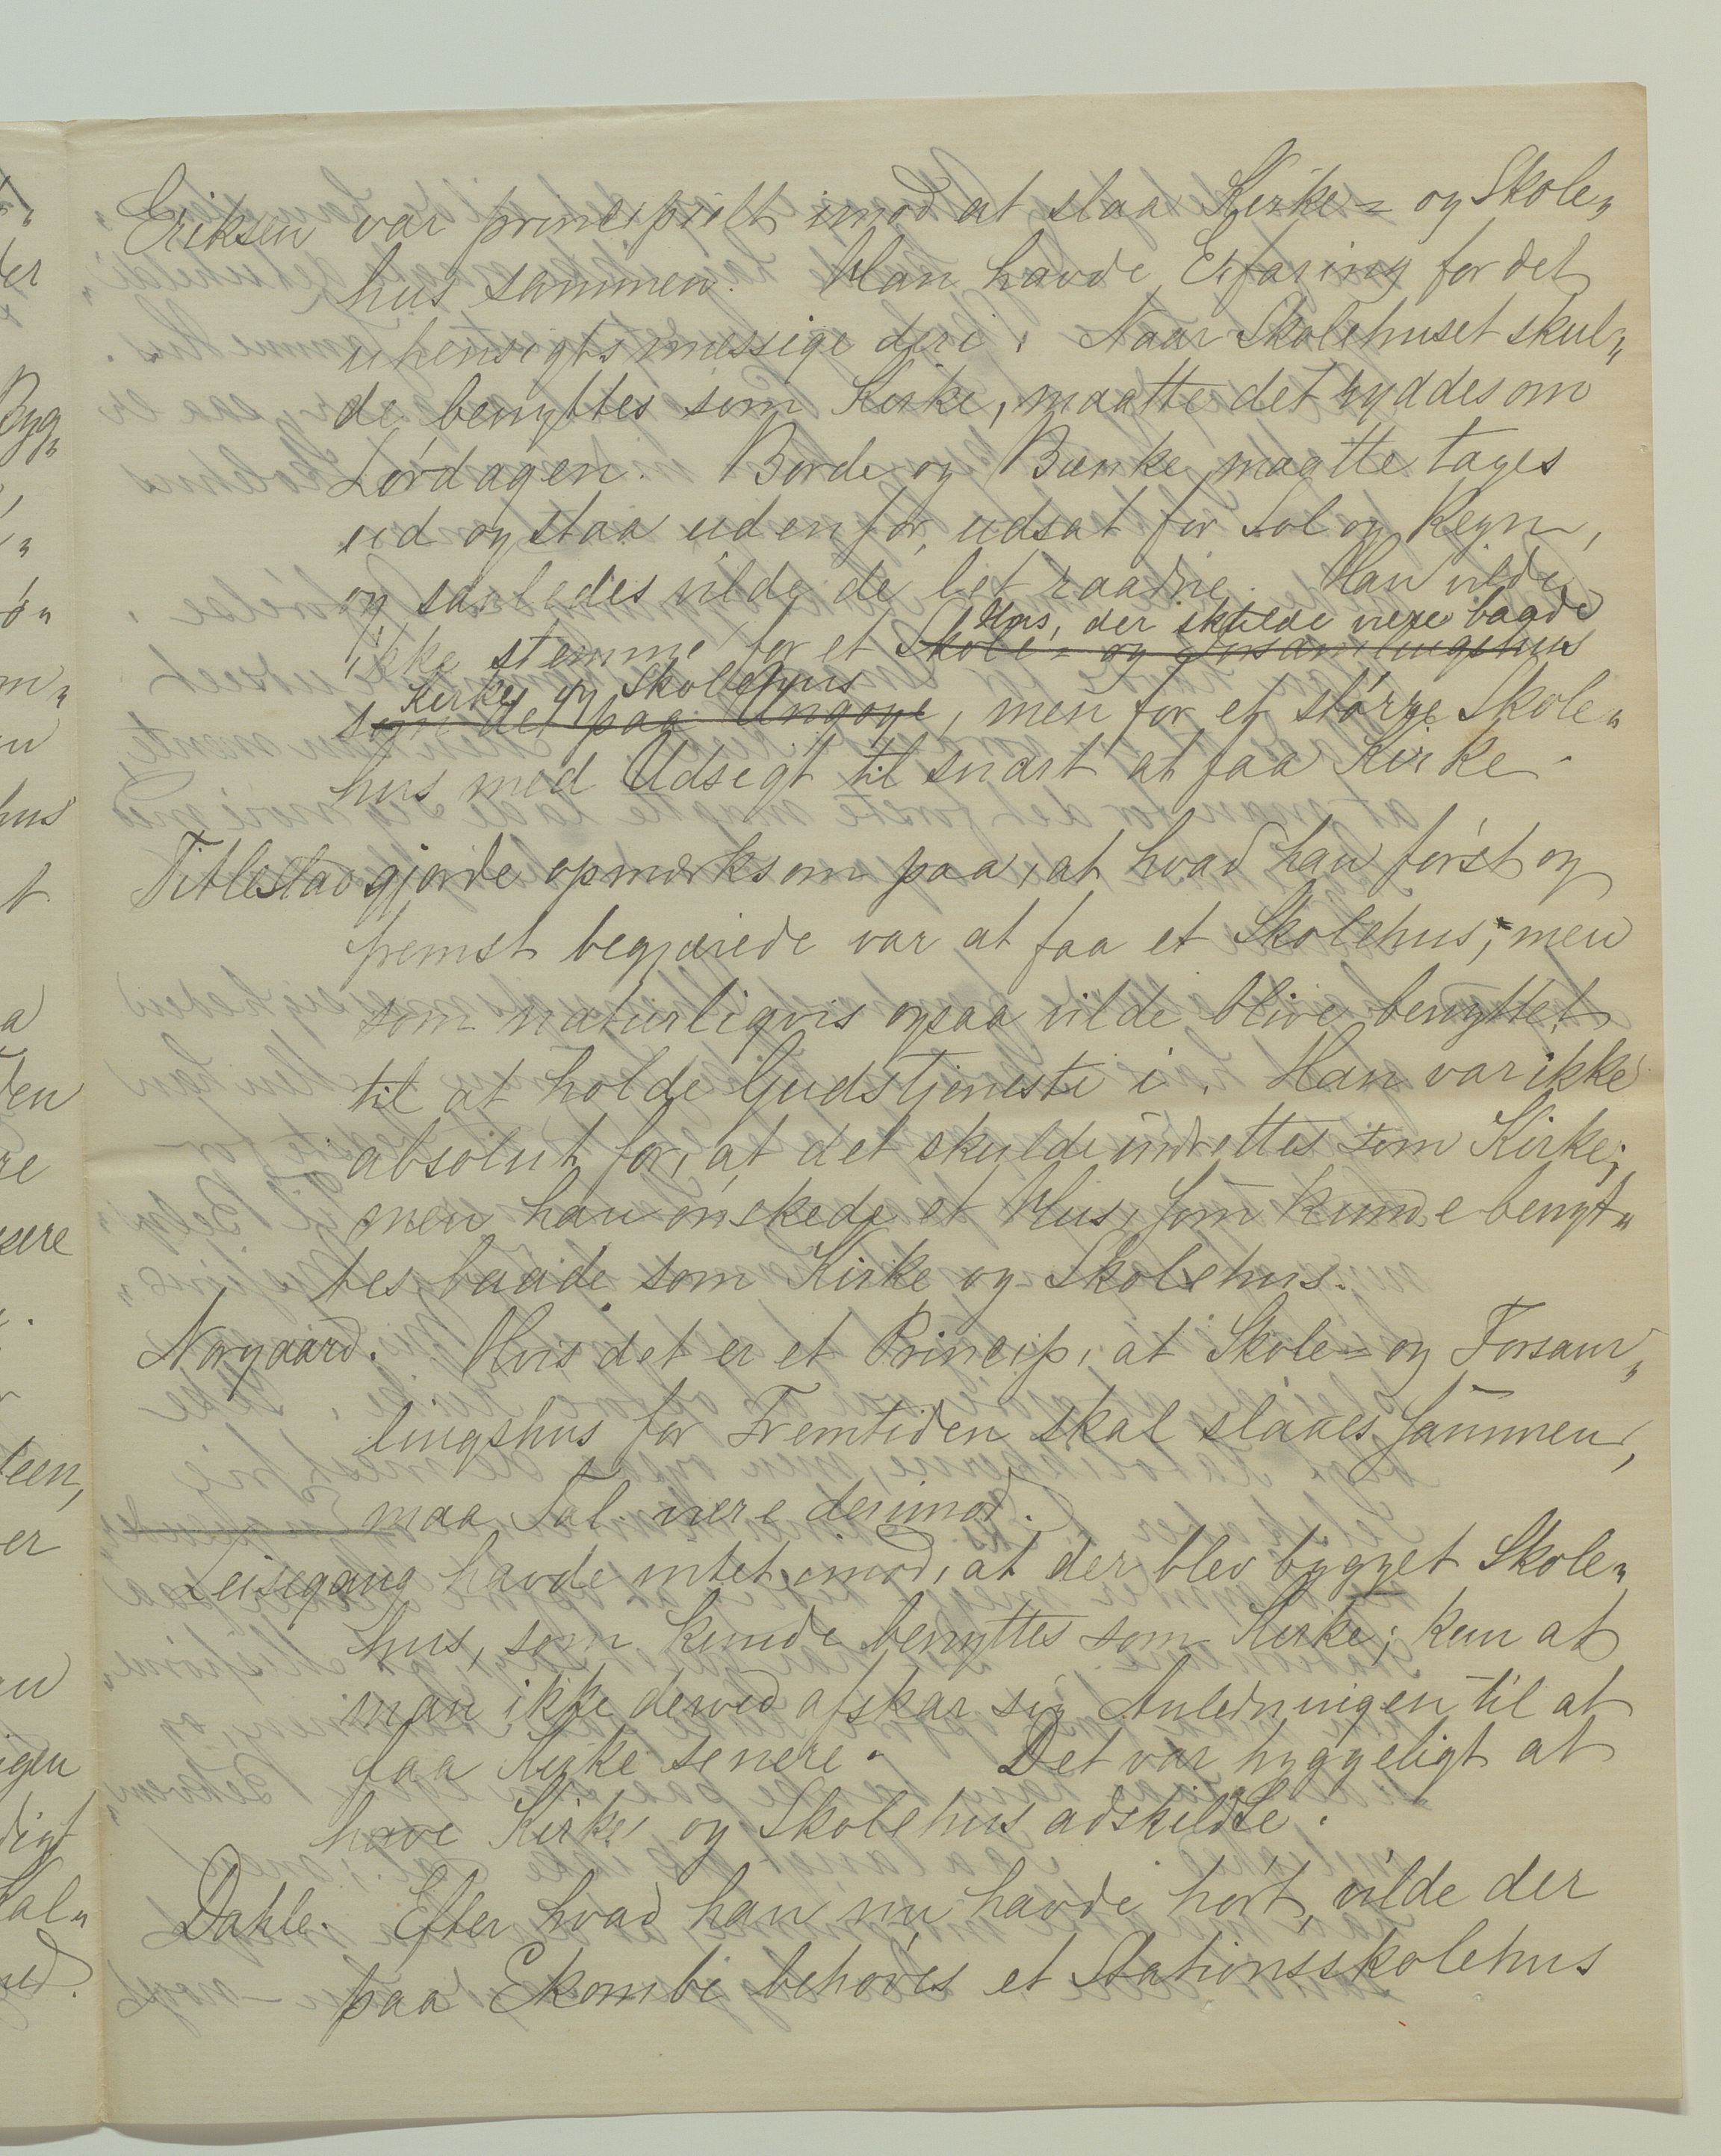 Eriksen var principielt imod at slaa Kirke= og Skole„
hus sammen. Han havde Erfaring for det
uhensigtsmessige deri. Naar Skolehuset skul„
de benyttes som Kirke, maatte det ryddes om
Lørdagen. Borde og Bænke maatte tages
ud og staa udenfor, udsat for Sol og Regn,
og saaledes vilde de let raadne. Han vilde
Hus, der skulde være baade
ikke stemme for et Skole= og Forsamlingshus
Kirke og Skolehus
som det paa Ungoye, men for et større Skole„
hus med Udsigt til snart at faa Kirke.
Titlestad gjorde opmærksom paa, at hvad han først og
fremst begjærede var at faa et Skolehus, men
som naturligvis ogsaa vilde blive benyttet
til at holde Gudstjeneste i. Han var ikke
absolut for, at det skulde indrettes som Kirke;
men han ønskede et Hus, som kunde benyt„
tes baade som Kirke og Skolehus.
Norgaard. Hvis det er et Princip, at Skole= og Forsam„
lingshus for Fremtiden skal slaaes sammen,
maa Tal. være derimod.
Leisegang havde intet imod, at der blev bygget Skole„
hus, som kunde benyttes som Kirke; kun at
man ikke derved afskar sig Anledningen til at
faa Kirke senere. Det var hyggeligt at
have Kirke og Skolehus adskildte.
Dahle. Efter hvad han nu havde hørt, vilde der
paa Ekombe behøves et Stationsskolehus